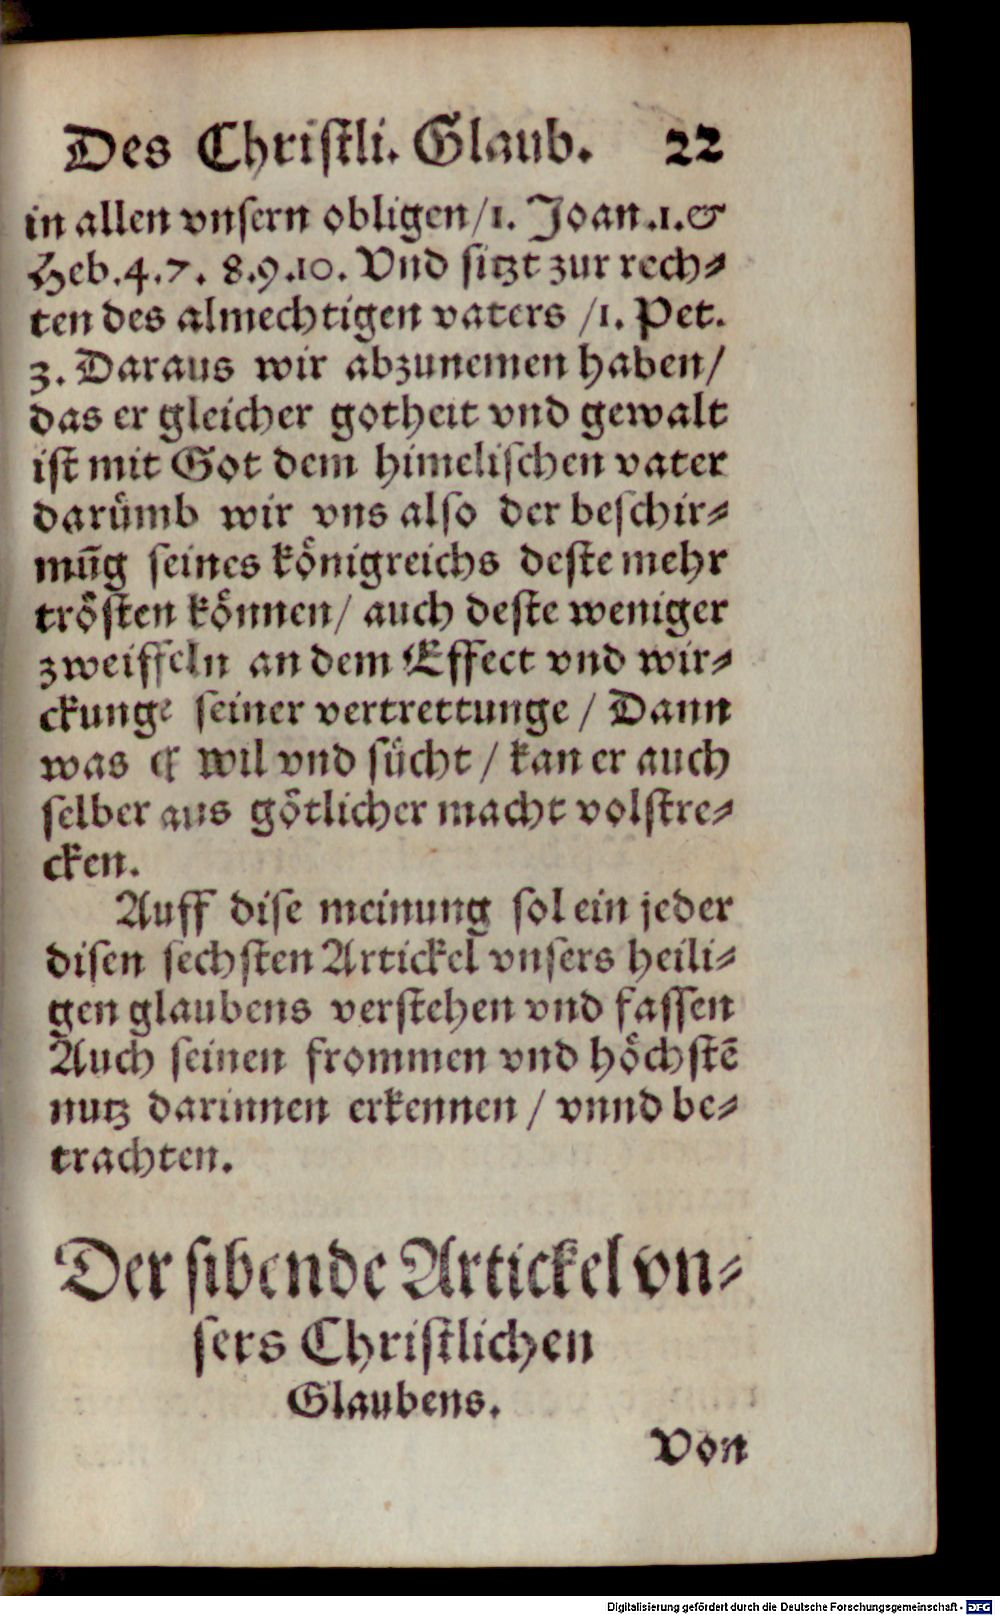 Des Christli. Glaub. 22
in allen vnsern obligen/1. Joan.1.&
Heb.4.7. 8.9.10. Vnd sitzt zur rech⸗
ten des almechtigen vaters /1. Pet.
3. Daraus wir abzunemen haben/
das er gleicher gotheit vnd gewalt
ist mit Got dem himelischen vater
darümb wir vns also der beschir⸗
mūg seines königreichs deste mehr
trösten können/ auch deste weniger
zweiffeln an dem Effect vnd wir⸗
ckunge seiner vertrettunge / Dann
was er wil vnd sücht / kan er auch
selber aus götlicher macht volstre⸗
cken.
Auff dise meinung sol ein jeder
disen sechsten Artickel vnsers heili⸗
gen glaubens verstehen vnd fassen
Auch seinen frommen vnd höchstē
nutz darinnen erkennen / vnnd be⸗
trachten.
Der sibende Artickel vn⸗
sers Christlichen
Glaubens.
Von
Digitalisierung gefördert durch die Deutsche Forschungsgemeinschaft - DFG